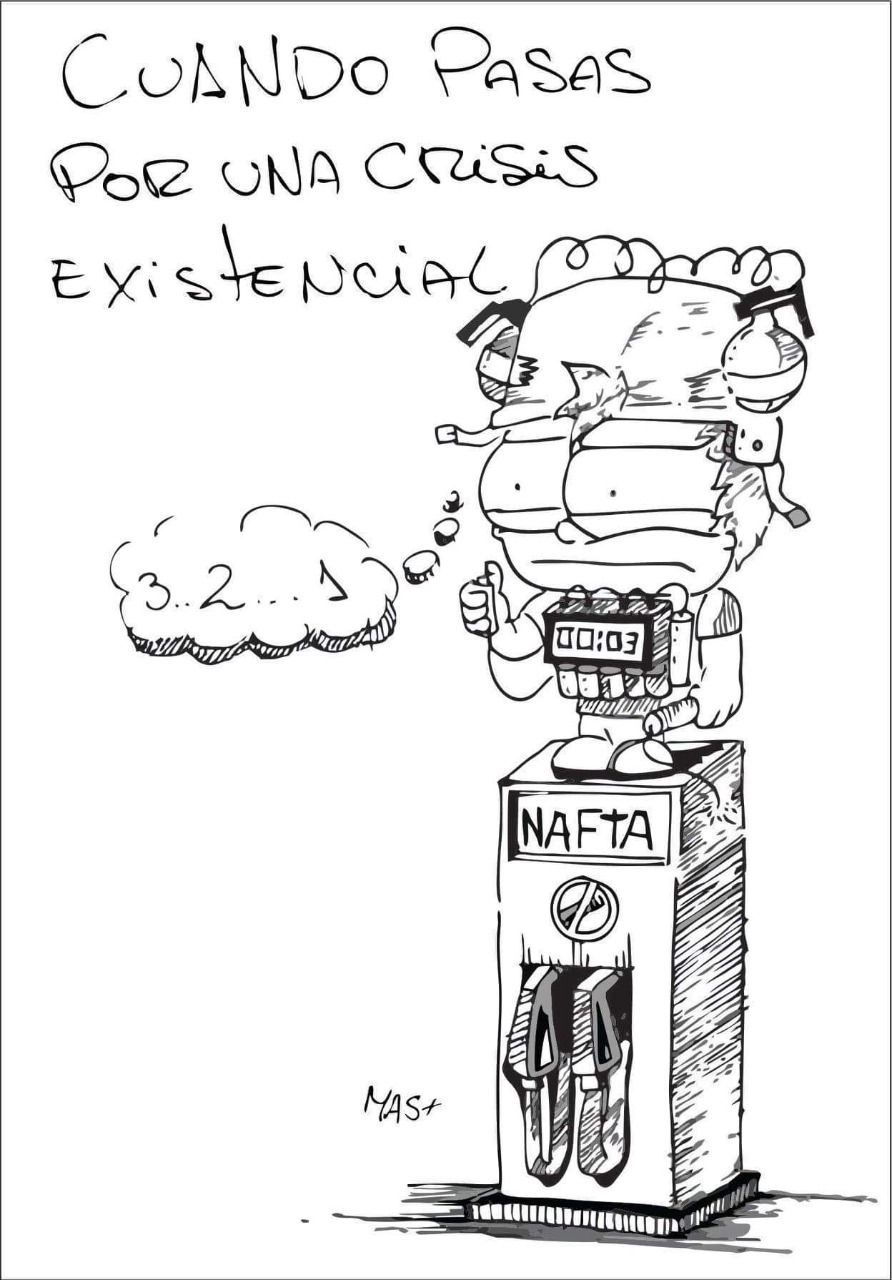 CUANDO PASAS
POR UNA CRISIS
EXISTENCIAL
3..2....1
00:03
NAFTA
MAS+